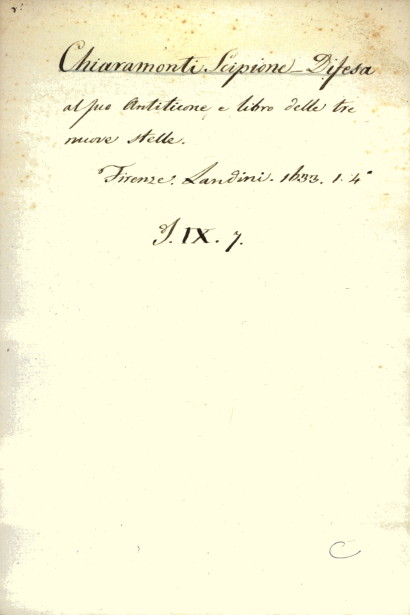 Chiaramonti Scipione _ Difesa
al suo Antiticone e libro delle tre
nuove stelle.
Firenze. Landini. 1633. 1. 4°
I. IX. 7.
C